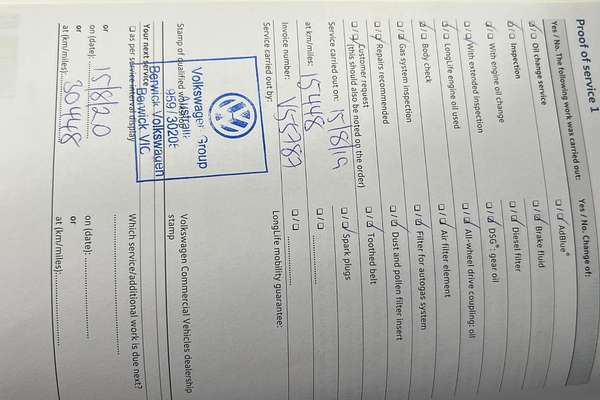 Proof of service 1
Yes / No. The following work was carried out:
Oil change service
Inspection
With engine oil change
With extended inspection
LongLife engine oil used
Body check
Gas system inspection
Repairs recommended
Customer request
(this should also be noted on the order)
Service carried out on: 15/8/19
at km/miles: 15448
Invoice number:
Service carried out by:
Volkswagen Group
Australia
Berwick Volkswagen
Berwick VIC
Stamp of qualified workshop
Your next service:
as per service interval display
or
on (date): 15/8/20
or
at (km/miles): 30448
Yes / No. Change of:
AdBlue®
Brake fluid
Diesel filter
DSG®: gear oil
All-wheel drive coupling: oil
Air filter element
Filter for autogas system
Dust and pollen filter insert
Toothed belt
Spark plugs
LongLife mobility guarantee:
Volkswagen Commercial Vehicles dealership
stamp
Which service/additional work is due next?
on (date):
or
at (km/miles):